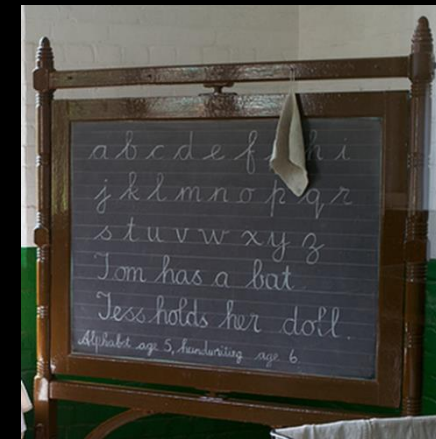 a b c d e f h i
j k l m n o p q r
s t u v w x y z
Tom has a bat
Tess holds her doll.
Alphabet age 5, handwriting age 6